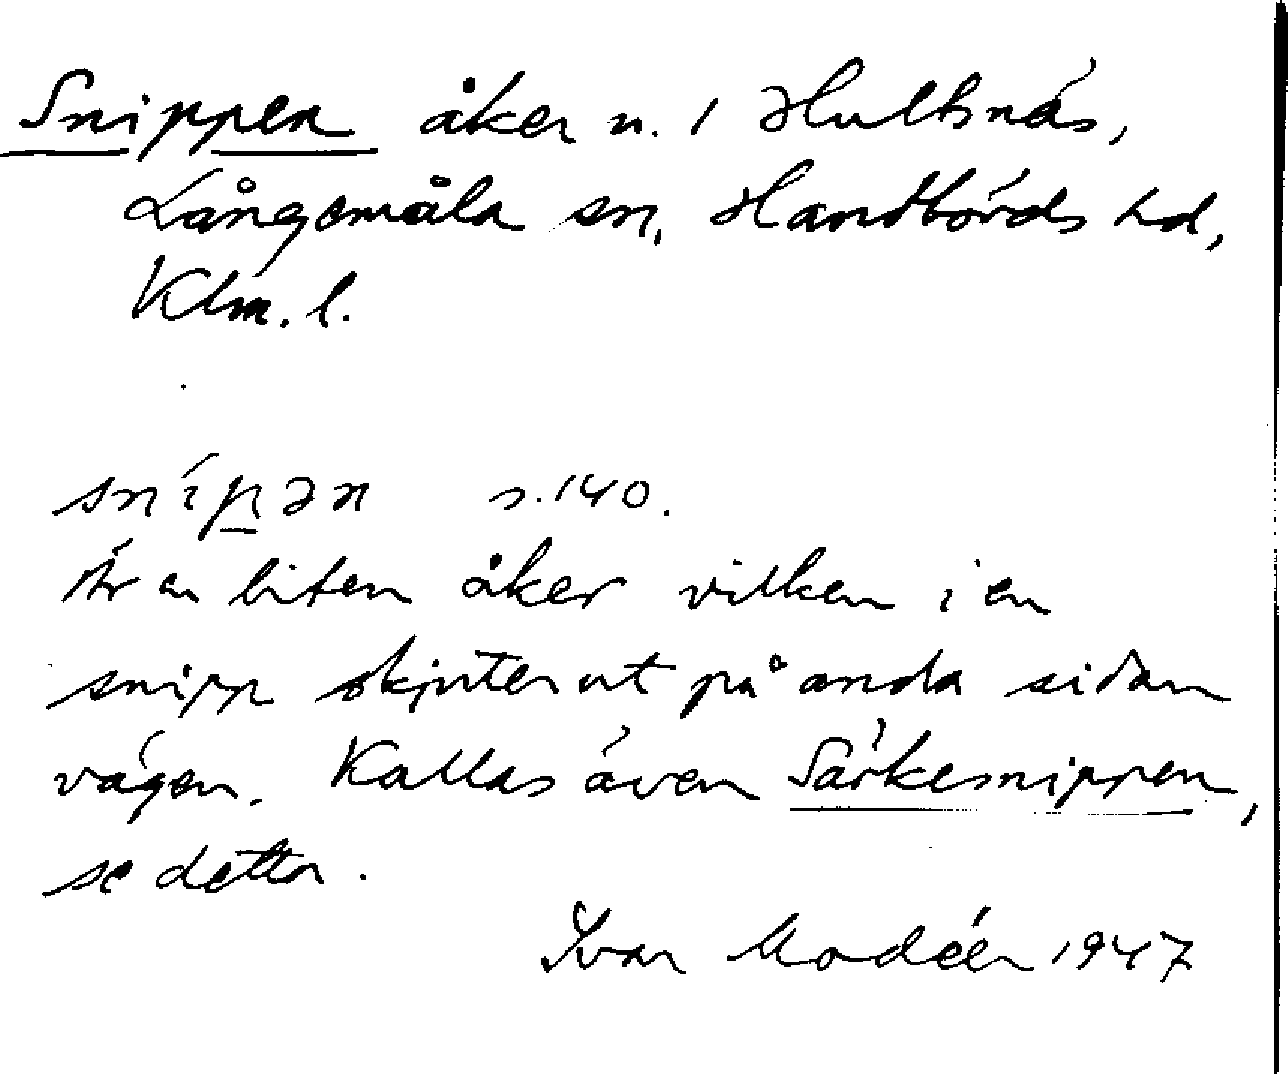 Snippen åker n. 1 Hultsnäs,
Långemåla sn, Handbörds hd,
Klm. l.
snípən s. 140.
Är en liten åker vilken i en
snipp skjuter ut på anda sidan
vägen. Kallas även Särkesnippen,
se detta.
Ivar Modéer 1947